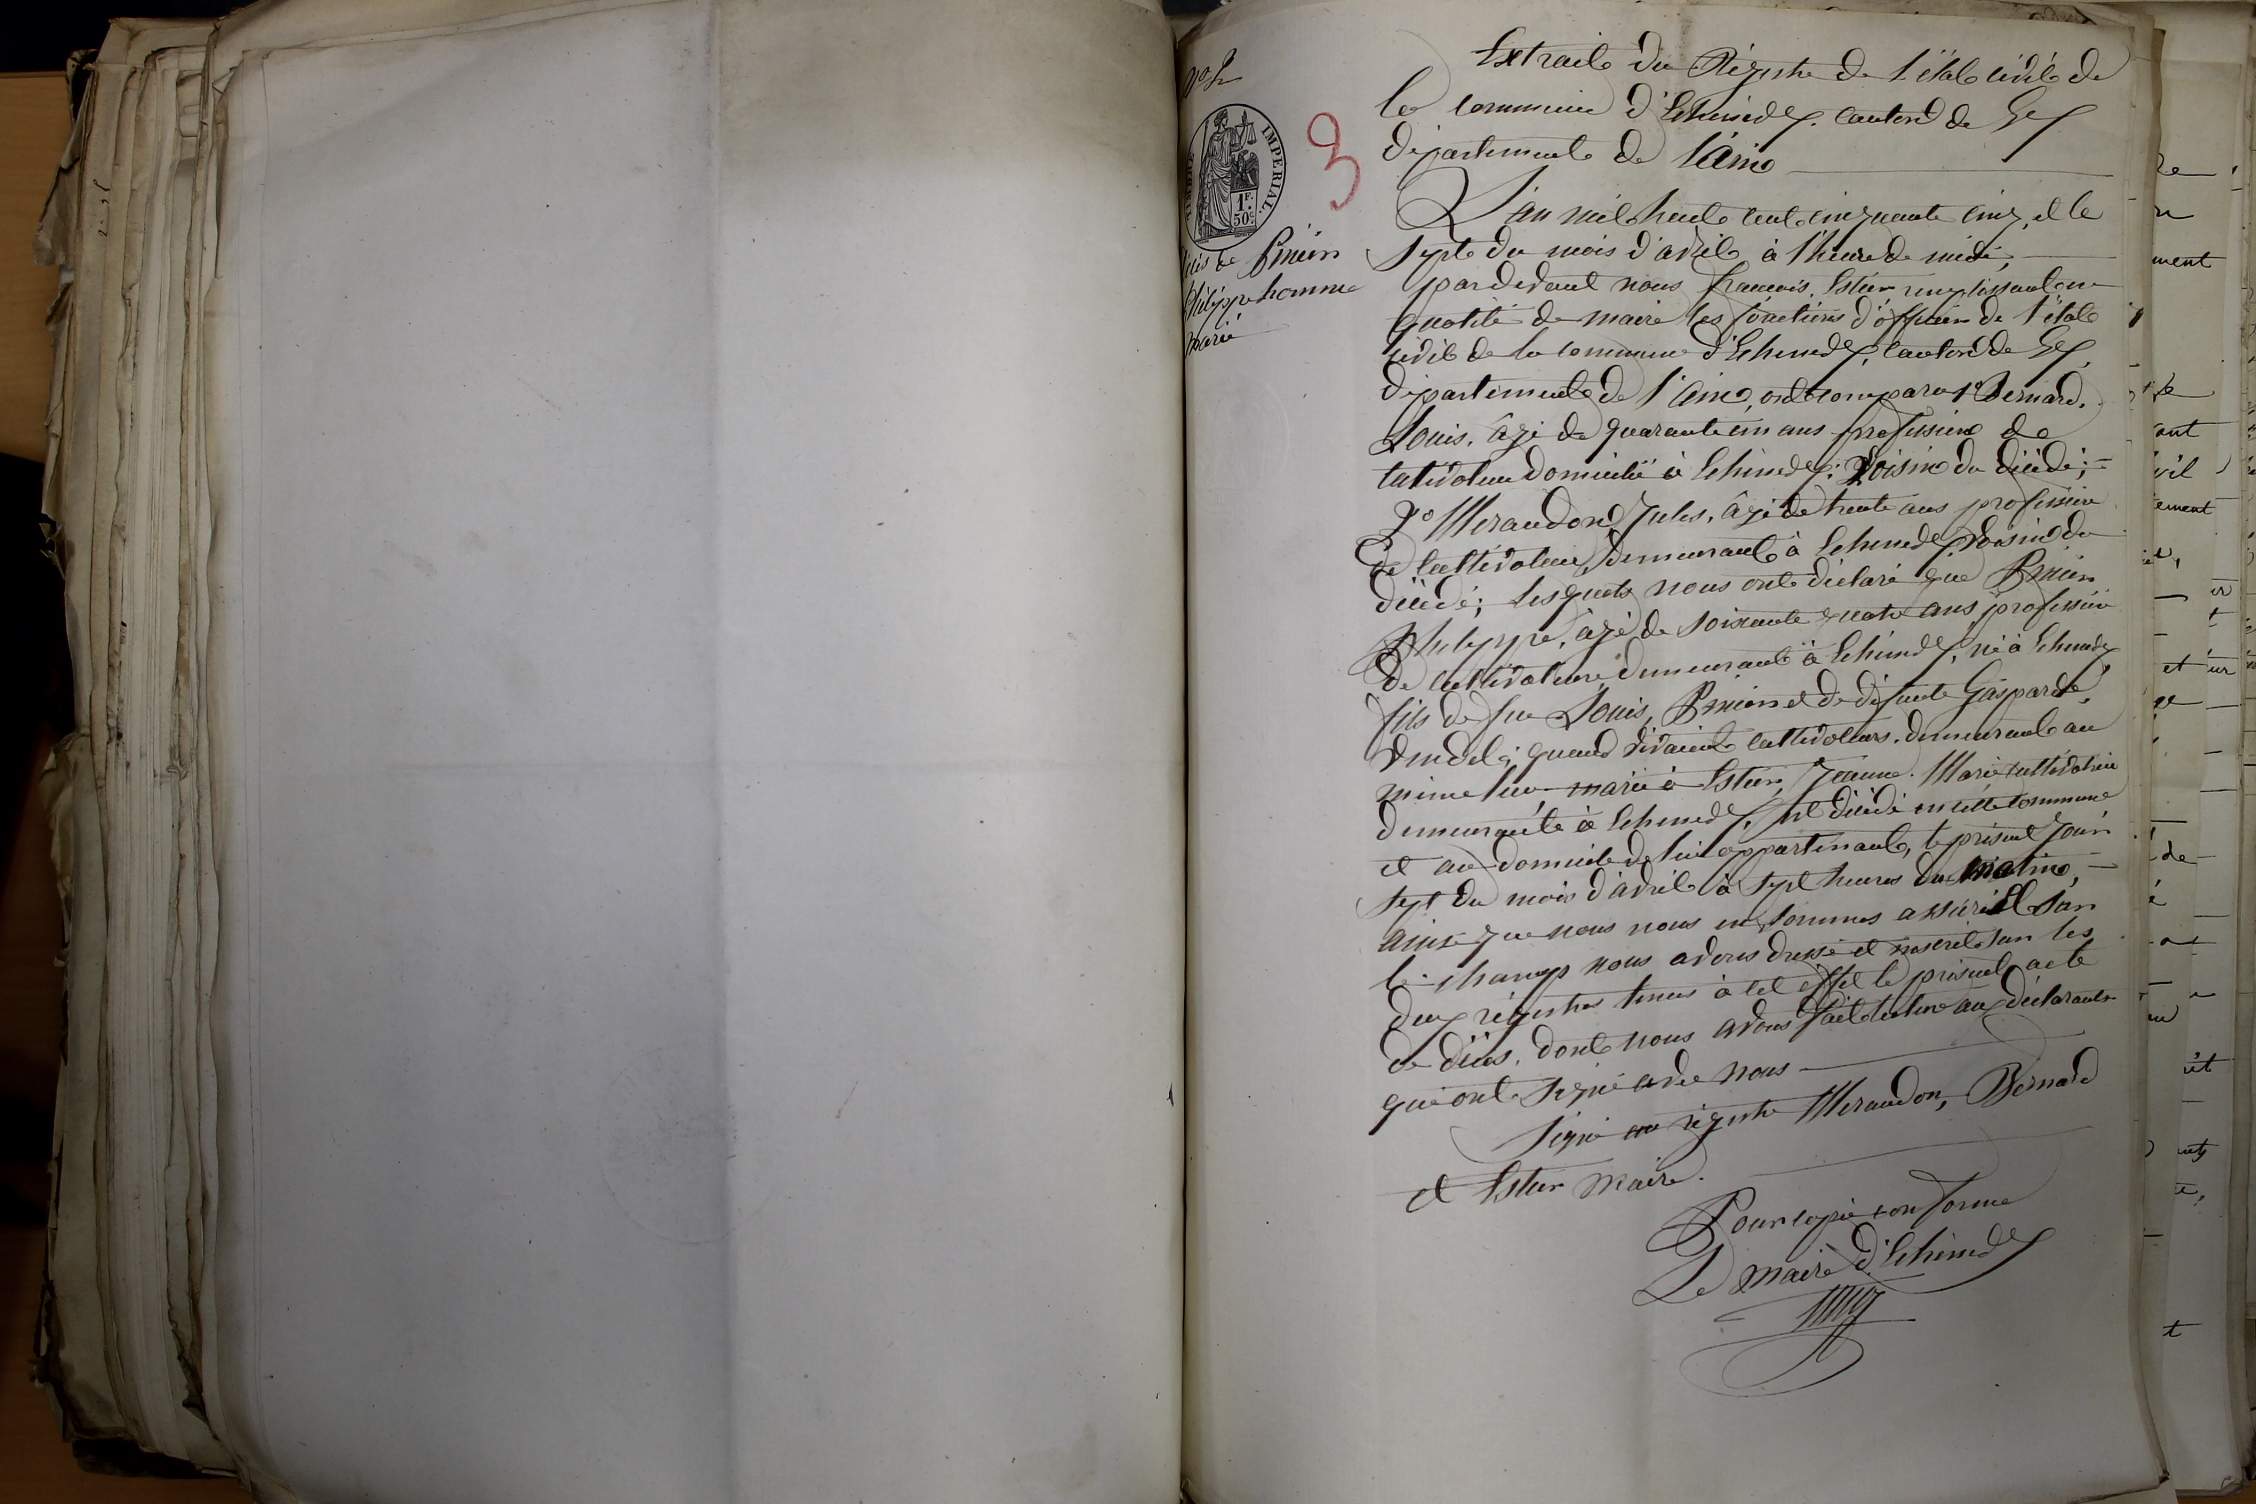 Extrait du Régistre de l'état civil de
la commune d'Echenevex canton de Gex
département de l'ain
L'an mil huit cent cinquante cinq, et le
sept du mois d'avril à l'heure de midi,
pardevant nous francois, Estier remplissant en
qualité de maire les fonctions d'officier de l'état
civil de la commune d'Echenevex, canton de Gex,
département de l'ain, ont comparu 1º Bernard,
Louis, âgé de quarante cinq ans profession de
cultivateur domicilié à Echenevex. voisin du décédé;
2º Meraudon Jules, âgé de trente ans profession
de cultivateur, demeurant à Echenevex, voisin du
décédé; lesquels nous ont déclaré que
Philippe, âgé de soixante quatre ans, profession
de cultivateur demeurant à Echenevex, né à Echenevex
fils de feu Louis, et de défunte Gasparde,
quand vivaient cultivateurs, demeurant au
même lieu, marié à Estier, Jeanne Marie cultivatrice
demeurante à Echenevex, est décédé en cette commune
et au domicile de lui appartenant, le présent jour
sept du mois d'avril à sept heures du matin,
ainsi que nous nous en sommes assuré. Et sur
le champ nous avons dressé et inscrit sur les
deux régistres tenus à cet effet le présent acte
de décès, dont nous avons fait lecture aux déclarants
qui ont signé avec nous
Signé au régistre Meraudon, Bernard
et Estier maire.
Pour copie conforme
Le maire d'Echenevex
nº 2
TIMBRE IMPERIAL.
1F.
50c.
3
Philippe homme
marié